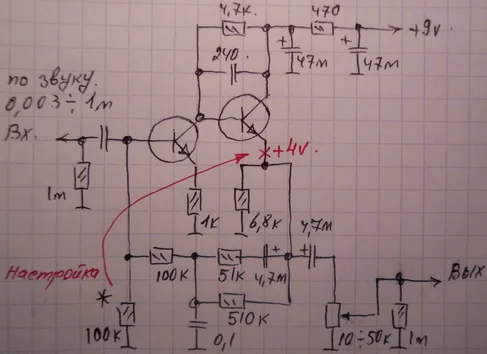 4,7к.
470
+9v.
+
+
240
47м
47м
по звуку.
0,003÷1м
Вх.
×+4v.
1м
1к
6,8к
4,7м
Настройка
100к
51к
+
4,7м
+
Вых
*
510к
100к
0,1
10÷50к
1м